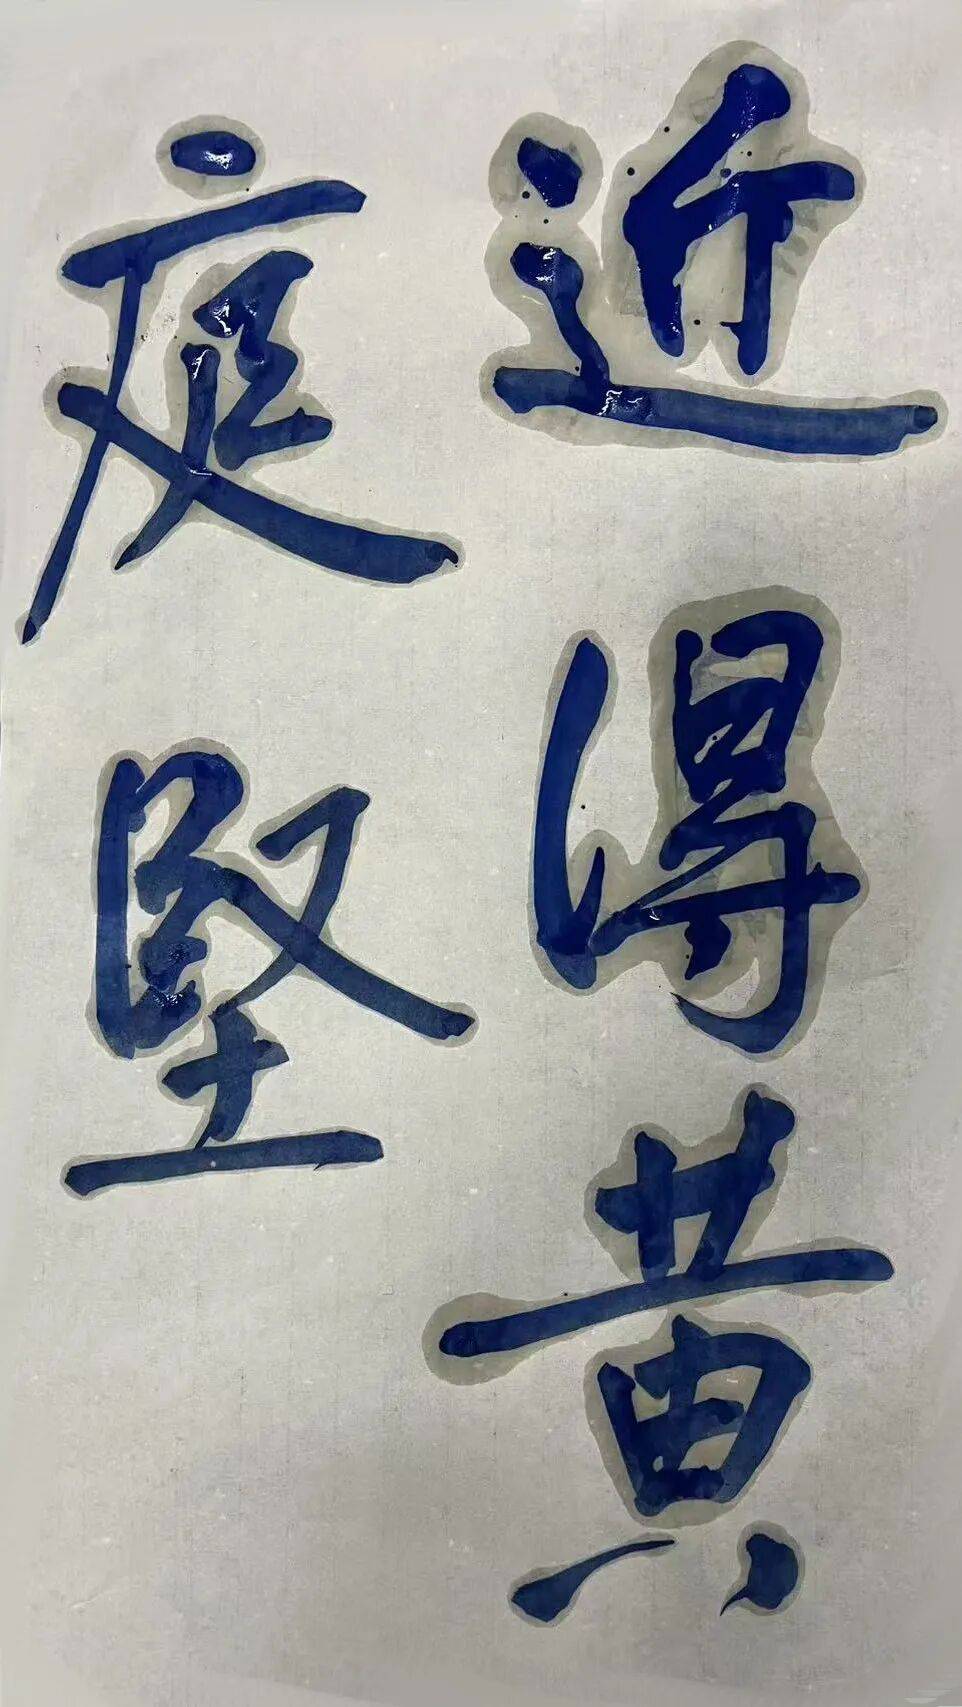 近得黄
庭堅